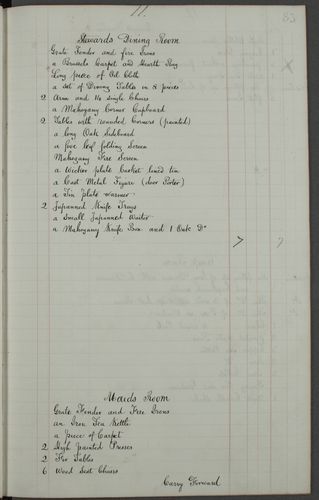 11.
83
Stewards Dining Room
Grate Fender and fire Irons
a Brussels Carpet and Hearth Rug
Long piece of Oil Cloth
a set of Dining Tables in 8 pieces
2 Arm and 14 single Chairs
a Mahogany Corner Cupboard
2 Tables with rounded Corners (painted)
a long Oak Sideboard
a five leaf folding Screen
Mahogany Fire Screen
a Wicker plate Basket lined tin
a Cast Metal Figure (door Porter)
a Tin plate warmer
2 Japanned Knife Trays
a Small Japanned Waiter
a Mahogany Knife Box and 1 Oak Do
Maids Room
Grate Fender and Fire Irons
an Iron Tea Kettle
a piece of Carpet
2 High painted Presses
2 Fir Tables
6 Wood Seat Chairs
Carry Forward